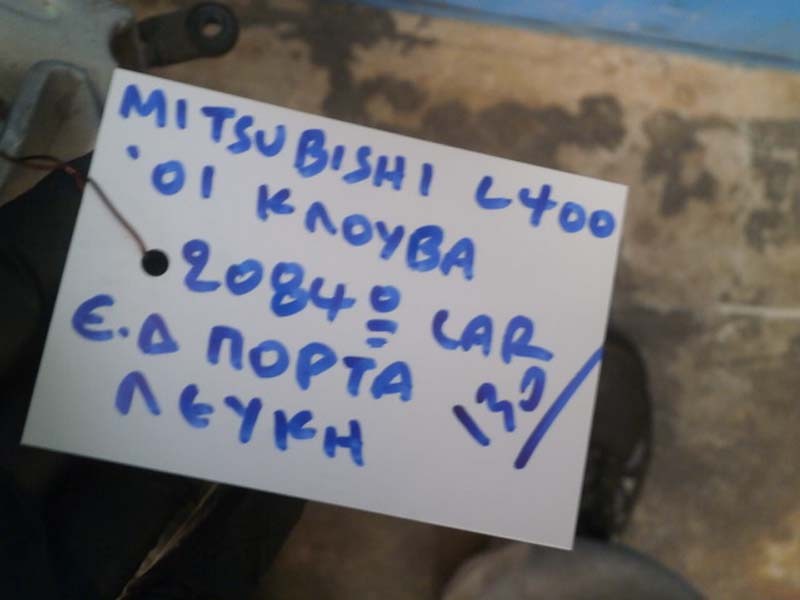 MITSUBISHI L400
'01 ΚΛΟΥΒΑ
20840 CAR
Ε.Δ ΠΟΡΤΑ
ΛΕΥΚΗ 130/